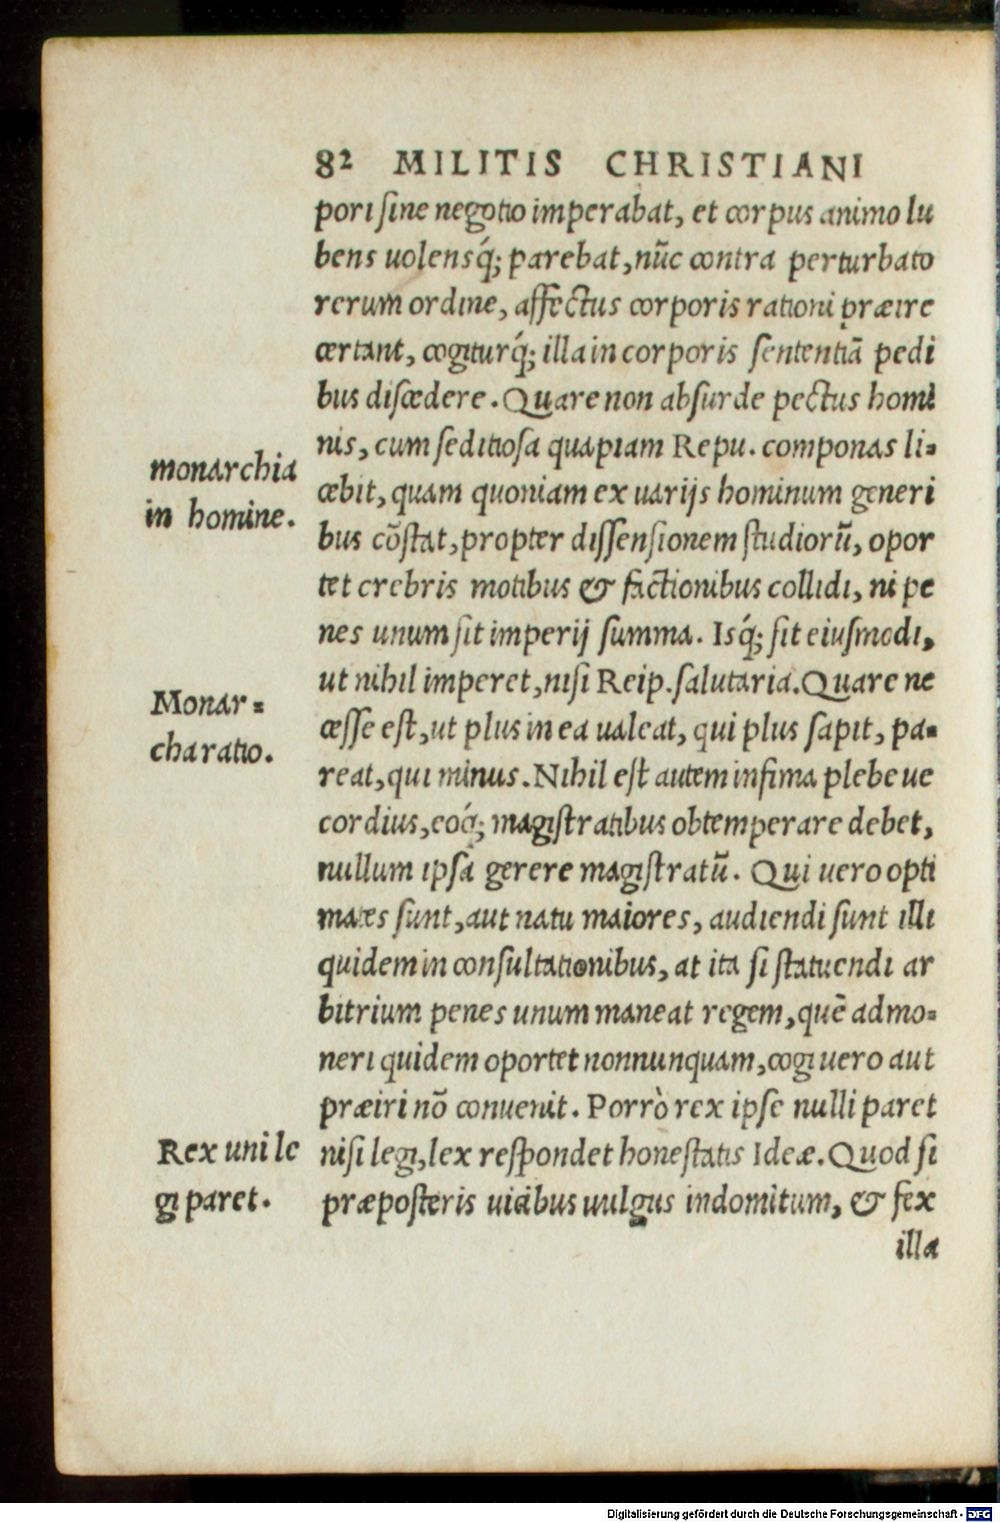 82 MILITIS CHRISTIANI
pori ſine negotio imperabat, et corpus animo lu
bens uolensq́; parebat, nūc contra perturbato
rerum ordine, affectus corporis rationi præire
certant, cogiturq́; illa in corporis ſententiā pedi
bus diſcedere. Quare non abſurde pectus homi
nis, cum ſeditioſa quapiam Repu. componas li=
monarchia
in homine.
cebit, quam quoniam ex uarijs hominum generi
bus cōſtat, propter diſſenſionem ſtudiorū, opor
tet crebris motibus & factionibus collidi, ni pe
nes unum ſit imperij ſumma. Isq́; ſit eiuſmodi,
ut nihil imperet, niſi Reip. ſalutaria. Quare ne
Monar=
cha ratio.
ceſſe eſt, ut plus in ea ualeat, qui plus ſapit, pa=
reat, qui minus. Nihil eſt autem infima plebe ue
cordius, eoq́; magiſtratibus obtemperare debet,
nullum ipſa gerere magiſtratū. Qui uero opti
mates ſunt, aut natu maiores, audiendi ſunt illi
quidem in conſultationibus, at ita ſi ſtatuendi ar
bitrium penes unum maneat regem, quē admo=
neri quidem oportet nonnunquam, cogi uero aut
præiri nō conuenit. Porrò rex ipſe nulli paret
Rex uni le
gi paret.
niſi legi, lex reſpondet honeſtatis Ideæ. Quod ſi
præpoſteris uicibus uulgus indomitum, & fex
illa
Digitalisierung gefördert durch die Deutsche Forschungsgemeinschaft - DFG